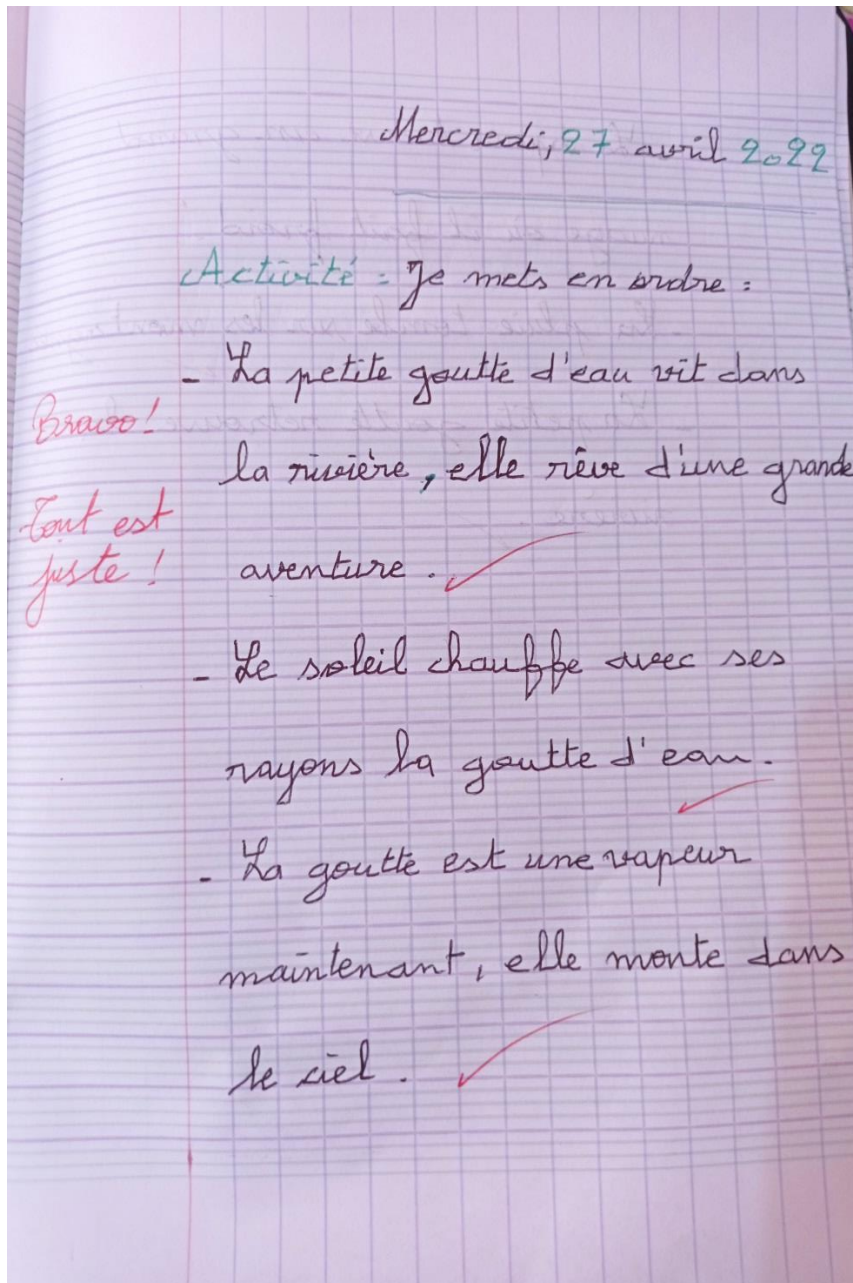 Mercredi, 27 avril 2022
Activité : Je mets en ordre :
- La petite goutte d'eau vit dans
Bravo!
la rivière, elle rêve d'une grande
Tout est
juste !
aventure.
- Le soleil chauffe avec ses
rayons la goutte d'eau.
- La goutte est une vapeur
maintenant, elle monte dans
le ciel.